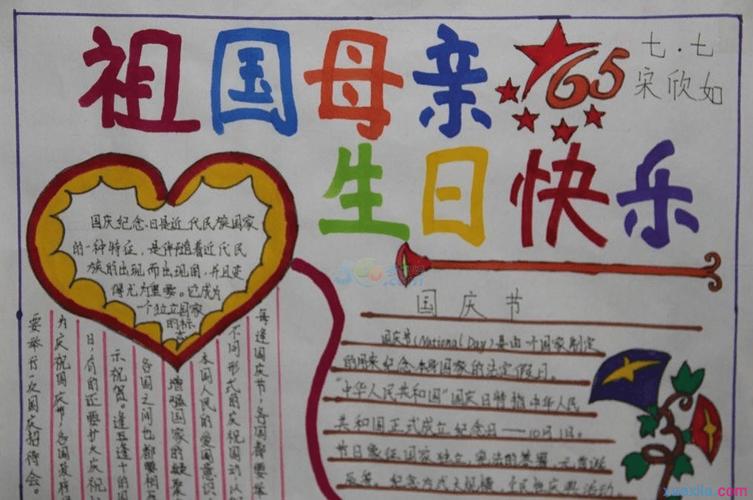 祖国母亲
65
七·七
宋欣如
生日快乐
国庆纪念日是近代民族国家
的一种特征，是伴随着近代民
族的出现而出现的，并且变
得尤为重要。它成为
一个独立国家
的标
志
每逢国庆节，各国都要举
不同形式的庆祝活动，以
本国人民的爱国意识
增强国家的凝聚
各国之间也都要相
示祝贺。逢五逢十的国
日，有的还要扩大庆祝
为庆祝国庆节，各国政府
要举行一次国庆招待会。
国庆节
国庆节(National Day)是由一个国家制定
的用来纪念本身国家的法定假日。
"中华人民共和国"国庆日特指中华人民
共和国正式成立纪念日——10月1日。
节日象征国家独立、宪法的签署、元首诞
xuexila.com